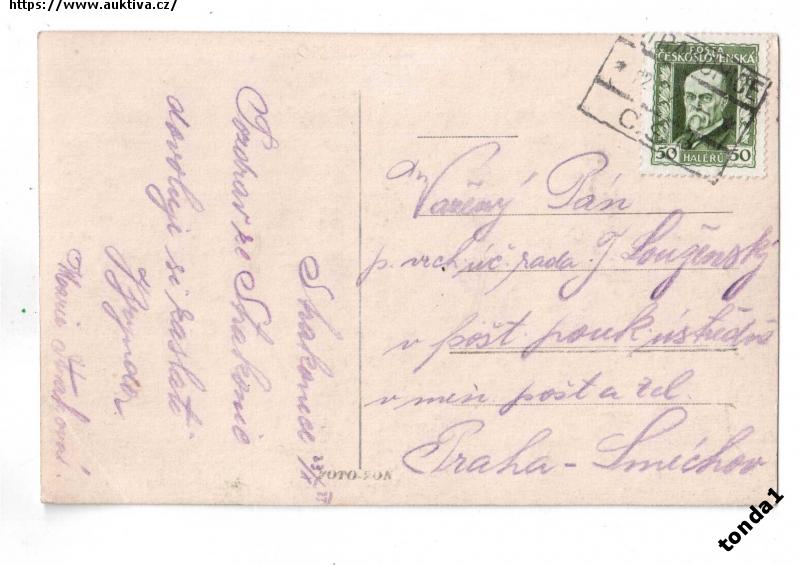 https://www.auktiva.cz/
POŠTA
ČESKOSLOVENSKÁ
50 HALÉŘŮ 50
Strakonice
Pozdrav ze Strakonic
dovoluje si zaslati
Marie
Vážený Pán
p. vrch. úč. rada J. Louženský
v pošt. pouk. ústředně
v min. pošt a tel.
Praha - Smíchov
FOTO-FON
tonda1